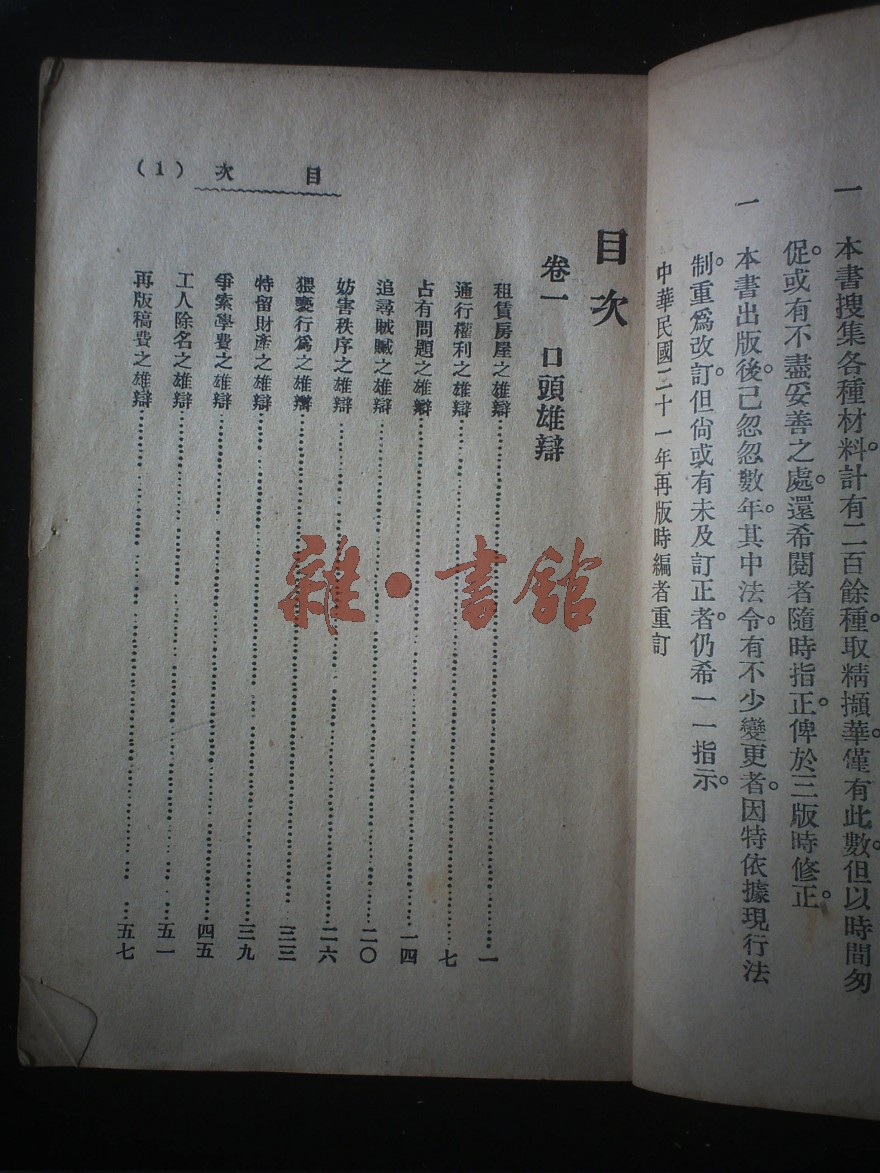 一　本書搜集各種材料。計有二百餘種。取精擷華。僅有此數。但以時間匆
促。或有不盡妥善之處。還希閱者隨時指正。俾於三版時修正。
一　本書出版後。已忽忽數年。其中法令。有不少變更者。因特依據現行法
制。重爲改訂。但尙或有未及訂正者。仍希一一指示。
中華民國二十一年再版時編者重訂
目次（1）
目次
卷一　口頭雄辯
租賃房屋之雄辯……一
通行權利之雄辯……七
占有問題之雄辯……一四
追尋賊贓之雄辯……二〇
妨害秩序之雄辯……二六
猥褻行爲之雄辯……三三
特留財產之雄辯……三九
爭索學費之雄辯……四五
工人除名之雄辯……五一
再版稿費之雄辯……五七
雜·書舘